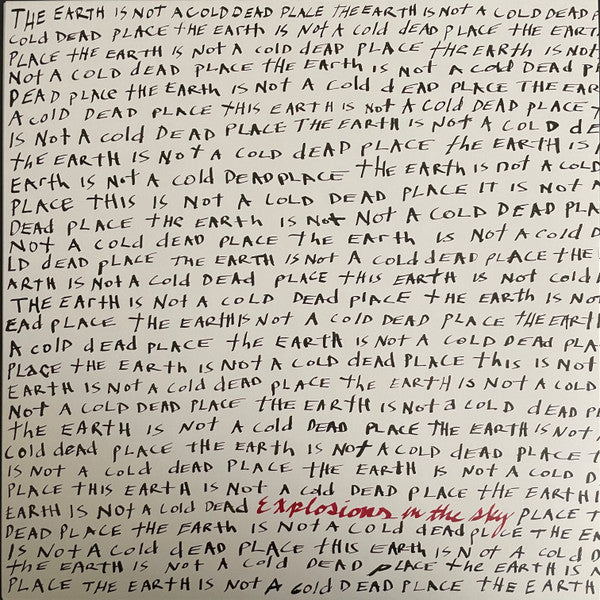 THE EARTH IS NOT A COLD DEAD PLACE THE EARTH IS NOT A COLD DEAD P
COLD DEAD PLACE THE EARTH IS NOT A COLD dEAD PLACE THE EART
PLACE THE EARTH IS NOT A COLD DEAD PLACE THE EARTH IS NOT
NOT A COLD dEAD PLACE THE EARTH IS NOT A COLD DEAD Pl
DEAD PLACE THE EARTH IS NOT A COLD dEAD PLACE THE EAR
A COLD DEAD PLACE THIS EARTH IS NOT A COLD DEAD PLACE T
IS NOT A COLD DEAD PLACE THE EARTH IS NOT A COLD dE
THE EARTH IS NOT A COLD dEAD PLACE THE EARTH IS
EARTH IS NOT A COLD DEAD PLACE THE EARTH IS NOT A COLD
PLACE THIS IS NOT A COLD DEAD PLACE IT IS NOT A
DEAD PLACE THE EARTH IS NOT NOT A COLD DEAD PLA
NOT A COLD dEAD PLACE THE EARTH IS NOT A COLD D
LD dEAD PLACE THE EARTH IS NOT A COLD dEAD PLACE THE
ARTH IS NOT A COLD DEAD PLACE THIS EARTH IS NOT COLD
THE EARTH IS NOT A COLD DEAD PLACE THE EARTH IS NO
EAD PLACE THE EARTH IS NOT A COLD DEAD PLACE THE EARTH
A COLD dEAD PLACE THE EARTH IS NOT A COLD DEAD PLA
PLACE THE EARTH IS NOT A COLD dEAD PLACE THIS IS NOT
EARTH IS NOT A COLD dEAD PLACE THE EARTH IS NOT A COLD
NOT A COLD DEAD PLACE THE EARTH IS NOT a COLD dEAD P
THE EARTH IS NOT A COLD DEAD PLACE THE EARTH IS NOT
COLD dead PLACE THE EARTH IS NOT A COLD DEAD PLACE T
IS NOT A COLD DEAD PLACE THE EARTH IS NOT A COLD D
PLACE THIS EARTH IS NOT A COLD DEAD PLACE THE EARTH I
EARTH IS NOT A COLD DEAD Explosions in the sky PLACE T
DEAD PLACE THE EARTH IS NOT A COLD dead PLACE THE EA
IS NOT A COLD dEAD PLACE THIS EARTH IS NOT A COLD D
THE EARTH IS NOT A COLD DEAD PLACE THE EARTH IS N
PLACE THE EARTH IS NOT A COLD DEAD PLACE THE EARTH